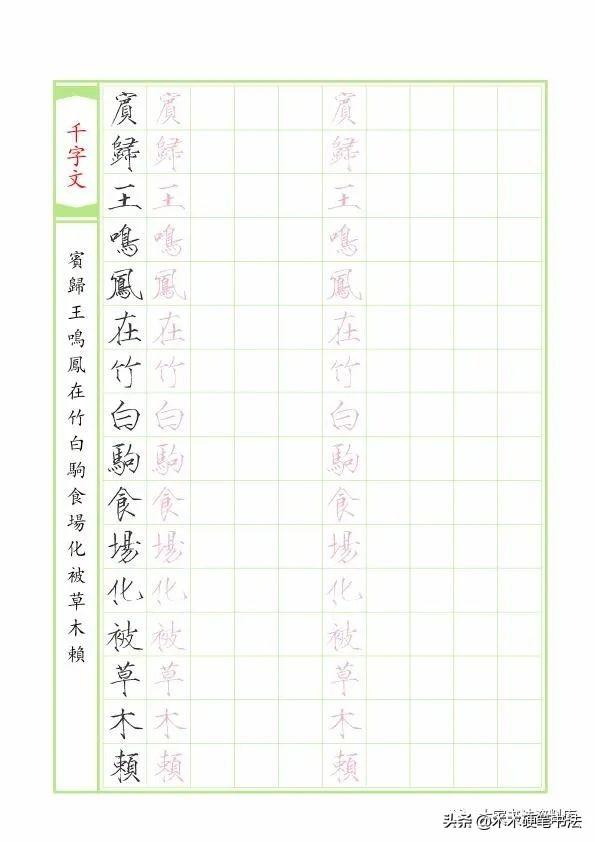 千字文
賓歸王鳴鳳在竹白駒食場化被草木賴
賓歸王鳴鳳在竹白駒食場化被草木賴
賓歸王鳴鳳在竹白駒食場化被草木賴
賓歸王鳴鳳在竹白駒食場化被草木賴
头条 @木木硬笔书法